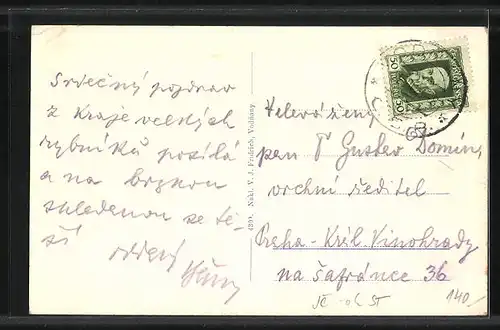 Srdečný pozdrav
z kraje velkých
rybníků posílá
a na brzkou
shledanou se tě-
ší
4390. Nakl. V. J. Fridrich, Vodňany.
50
50
Velevážený
pan Gustav Domin,
vrchní ředitel
Praha - Král Vinohrady
na Šafránce 36
140/-